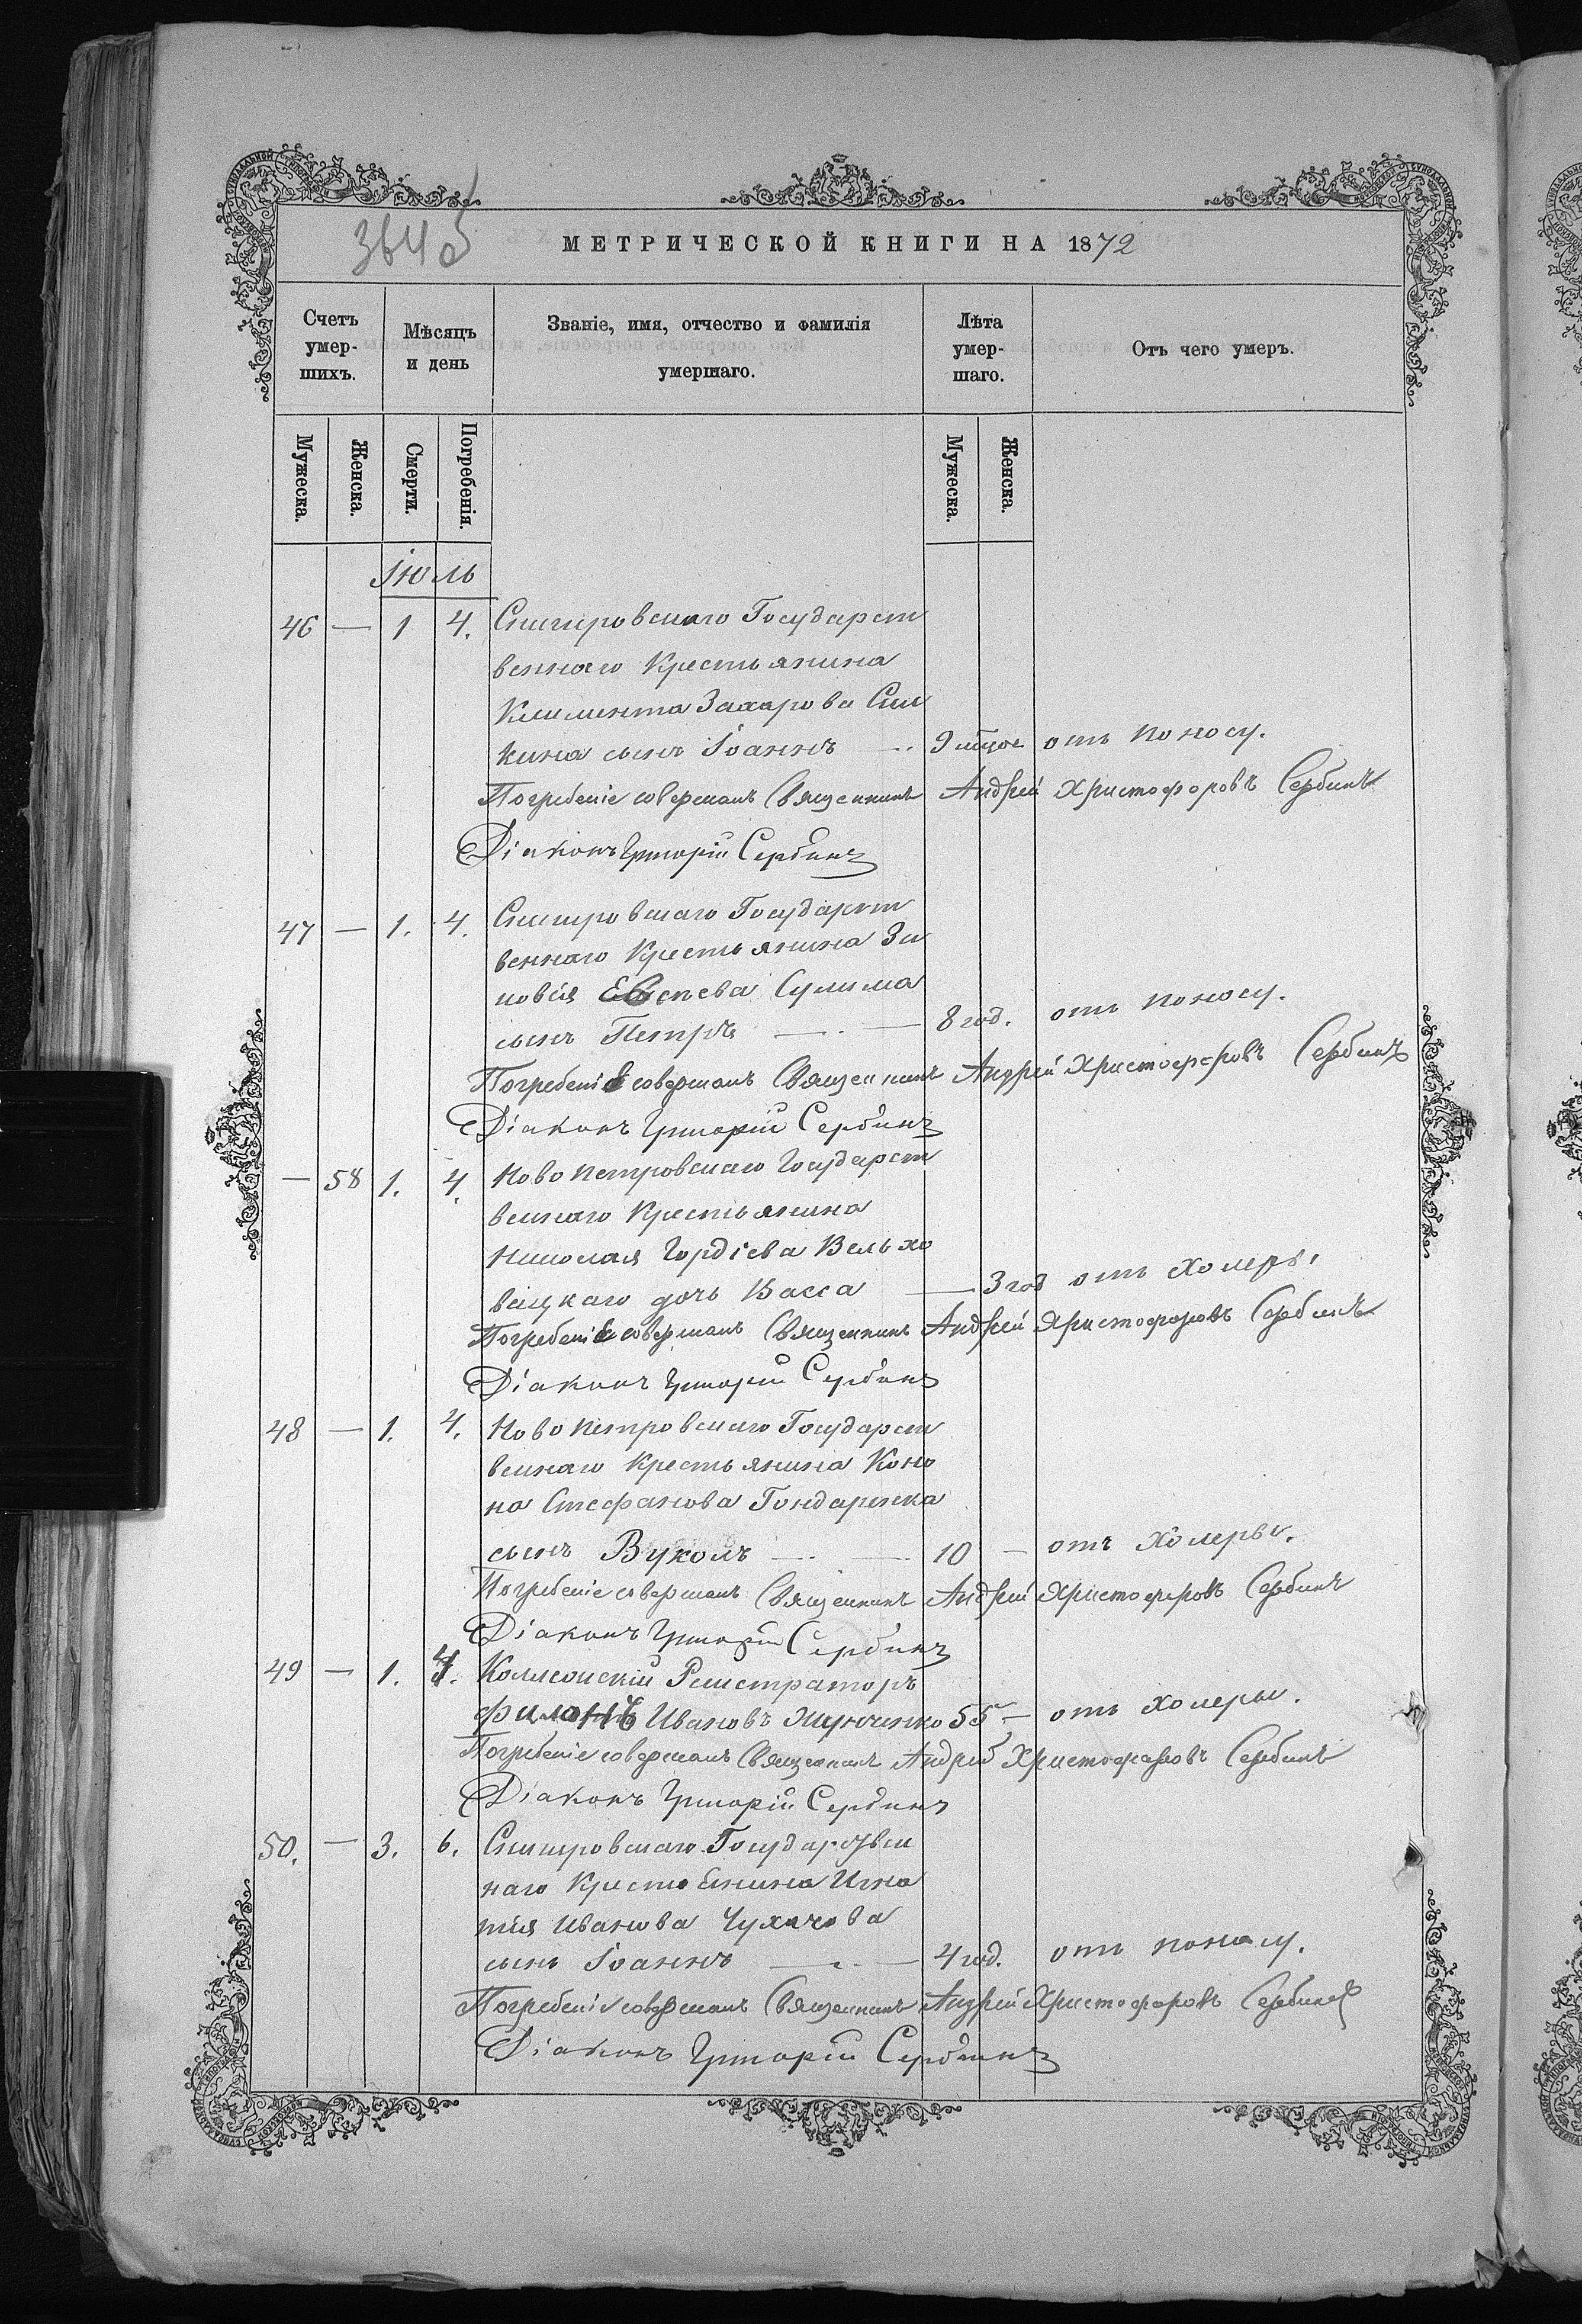 364 об
МЕТРИЧЕСКОЙ КНИГИ НА 1872
Счетъ умер-шихъ.
Мѣсяцъ и день
Званіе, имя, отчество и фамилія умершаго.
Лѣта умер-шаго.
Отъ чего умеръ.
Мужеска. Женска. Смерти. Погребенія. Мужеска. Женска.
Іюль
46 — 1 4. Снигировскаго Государст
веннаго Крестьянина
Климента Захарова
кина сынъ Іоаннъ 9 отъ поносу.
Погребеніе совершалъ Священникъ Андрей Христофоровъ Сербинъ
Діаконъ Григорій Сербинъ
47 — 1. 4. Снигировскаго Государст
веннаго Крестьянина Зи
новія Евсѣева Сулима
сынъ Петръ — — 8 год. отъ поносу.
Погребеніе совершалъ Священникъ Андрей Христофоровъ Сербинъ
Діаконъ Григорій Сербинъ
— 58 1. 4. Новопетровскаго Государст
веннаго Крестьянина
Николая Гордіева Вельхо
вацкаго дочь Васса — 3 год отъ холеры
Погребеніе совершалъ Священникъ Андрей Христофоровъ Сербинъ
Діаконъ Григорій Сербинъ
48 — 1. 4. Новопетровскаго Государст
веннаго Крестьянина Коно
на Стефанова Гондаренка
сынъ Вуколъ — — 10 — отъ холеры.
Погребеніе совершалъ Священникъ Андрей Христофоровъ Сербинъ
Діаконъ Григорій Сербинъ
49 — 1. 4. Коллежскій Регистраторъ
Филонъ Ивановъ 55 — отъ холеры.
Погребеніе совершалъ Священникъ Андрей Христофоровъ Сербинъ
Діаконъ Григорій Сербинъ
50. — 3. 6. Снигировскаго Государствен
наго Крестьянина Игна
тія Иванова Чухачова
сынъ Іоаннъ — — 4 год. отъ поносу.
Погребеніе совершалъ Священникъ Андрей Христофоровъ Сербинъ
Діаконъ Григорій Сербинъ